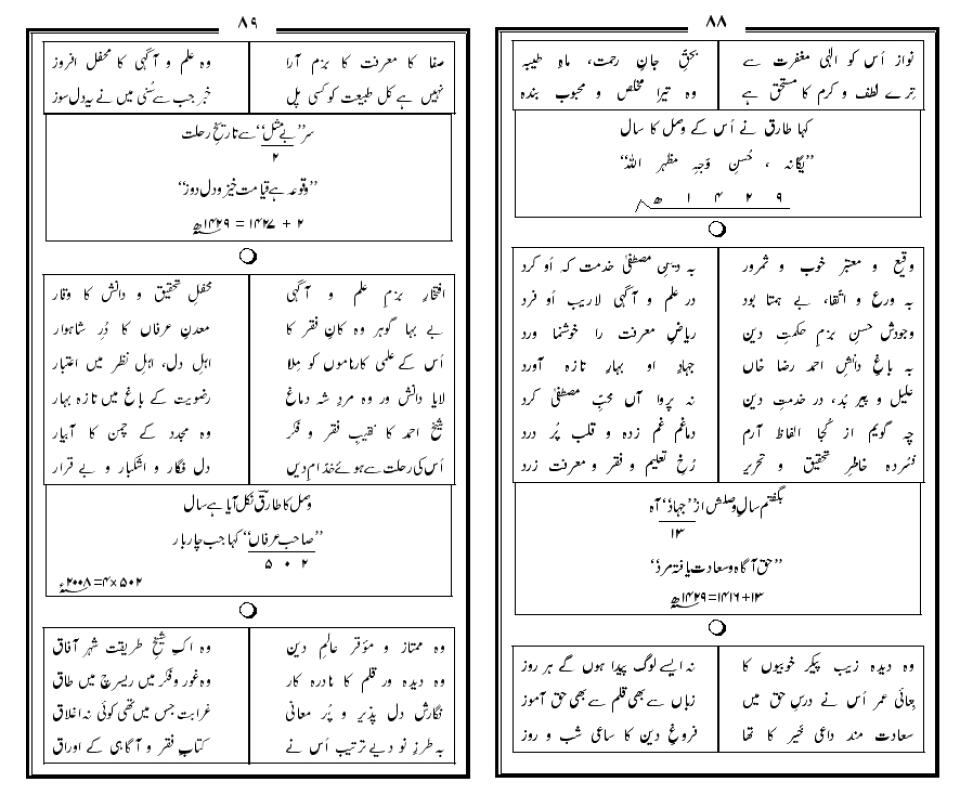 ۸۸
نواز اُس کو الٰہی مغفرت سے بحقِ جانِ رحمت، ماہِ طیبہ
تِرے لطف و کرم کا مستحق ہے وہ تیرا مخلص و محبوب بندہ
کہا طارق نے اُس کے وصل کا سال
”یگانہ ، حُسنِ وَجہِ مظہر اللہ“
۱ ۴ ۲ ۹ ھ
وقیع و معتبر خوب و ثمرور بہ دینِ مصطفیٰ خدمت کہ اُو کرد
بہ ورع و اتقاء، بے ہمتا بود در علم و آگہی لاریب اُو فرد
وجودش حسنِ بزمِ حکمتِ دین ریاضِ معرفت را خوشنما ورد
بہ باغِ دانشِ احمد رضا خاں جہادِ او بہارِ تازہ آورد
علیل و پیر بُد، در خدمتِ دین نہ پروا آں محبِّ مصطفیٰ کرد
چہ گویم از کُجا الفاظ آرم دماغم غم زدہ و قلب پُر درد
فسُردہ خاطرِ تحقیق و تحریر رُخِ تعلیم و فقر و معرفت زرد
بگفتم سالِ وصلش از ”جہاد“ آہ
۱۳
”حق آگاہ و سعادت یافتہ مرد“
۱۳+۱۴۱۶=۱۴۲۹ھ
وہ دیدہ زیب پیکر خوبیوں کا نہ ایسے لوگ پیدا ہوں گے ہر روز
بِتائی عمر اُس نے درسِ حق میں زباں سے بھی قلم سے بھی حق آموز
سعادت مند داعی خیر کا تھا فروغِ دین کا ساعی شب و روز
۸۹
صفا کا معرفت کا بزم آرا وہ علم و آگہی کا محفل افروز
نہیں ہے کل طبیعت کو کسی پل خبر جب سے سُنی میں نے یہ دل سوز
سر ”بے مثل“ سے تاریخِ رحلت
۲
”وقوعہ ہے قیامت خیز و دل دوز“
۲ + ۱۴۲۷ = ۱۴۲۹ھ
افتخارِ بزمِ علم و آگہی محفلِ تحقیق و دانش کا وقار
بے بہا گوہر وہ کانِ فقر کا معدنِ عرفاں کا دُرِ شاہوار
اُس کے علمی کارناموں کو مِلا اہلِ دل، اہلِ نظر میں اعتبار
لایا دانش ور وہ مردِ شہ دماغ رضویت کے باغ میں تازہ بہار
شیخ احمد کا نقیبِ فقر و فکر وہ مجدد کے چمن کا آبیار
اُس کی رحلت سے ہوئے خدّامِ دیں دل فگار و اشکبار و بے قرار
وصل کا طارقؔ نکل آیا ہے سال
”صاحبِ عرفاں“ کہا جب چار بار
۵۰۲
۵۰۲×۴=۲۰۰۸ء
وہ ممتاز و مؤقر عالمِ دین وہ اک شیخِ طریقت شہرِ آفاق
وہ دیدہ ور قلم کا نادرہ کار وہ غور و فکر میں ریسرچ میں طاق
نگارش دل پذیر و پُر معانی غرابت جس میں تھی کوئی نہ اغلاق
بہ طرزِ نو دیے ترتیب اُس نے کتابِ فقر و آگاہی کے اوراق